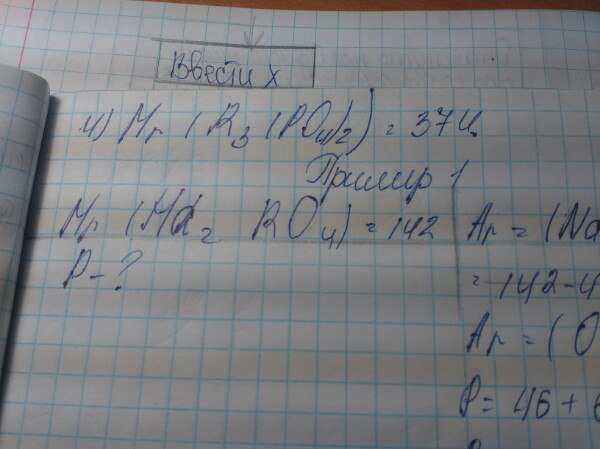 Ввести х
4) Mr (R3 (PO4)2) = 374
Пример 1
Mr (Na2 RO4) = 142
Р - ?
Ar = (Na
= 142-4
Ar = (O
P = 46 + 6